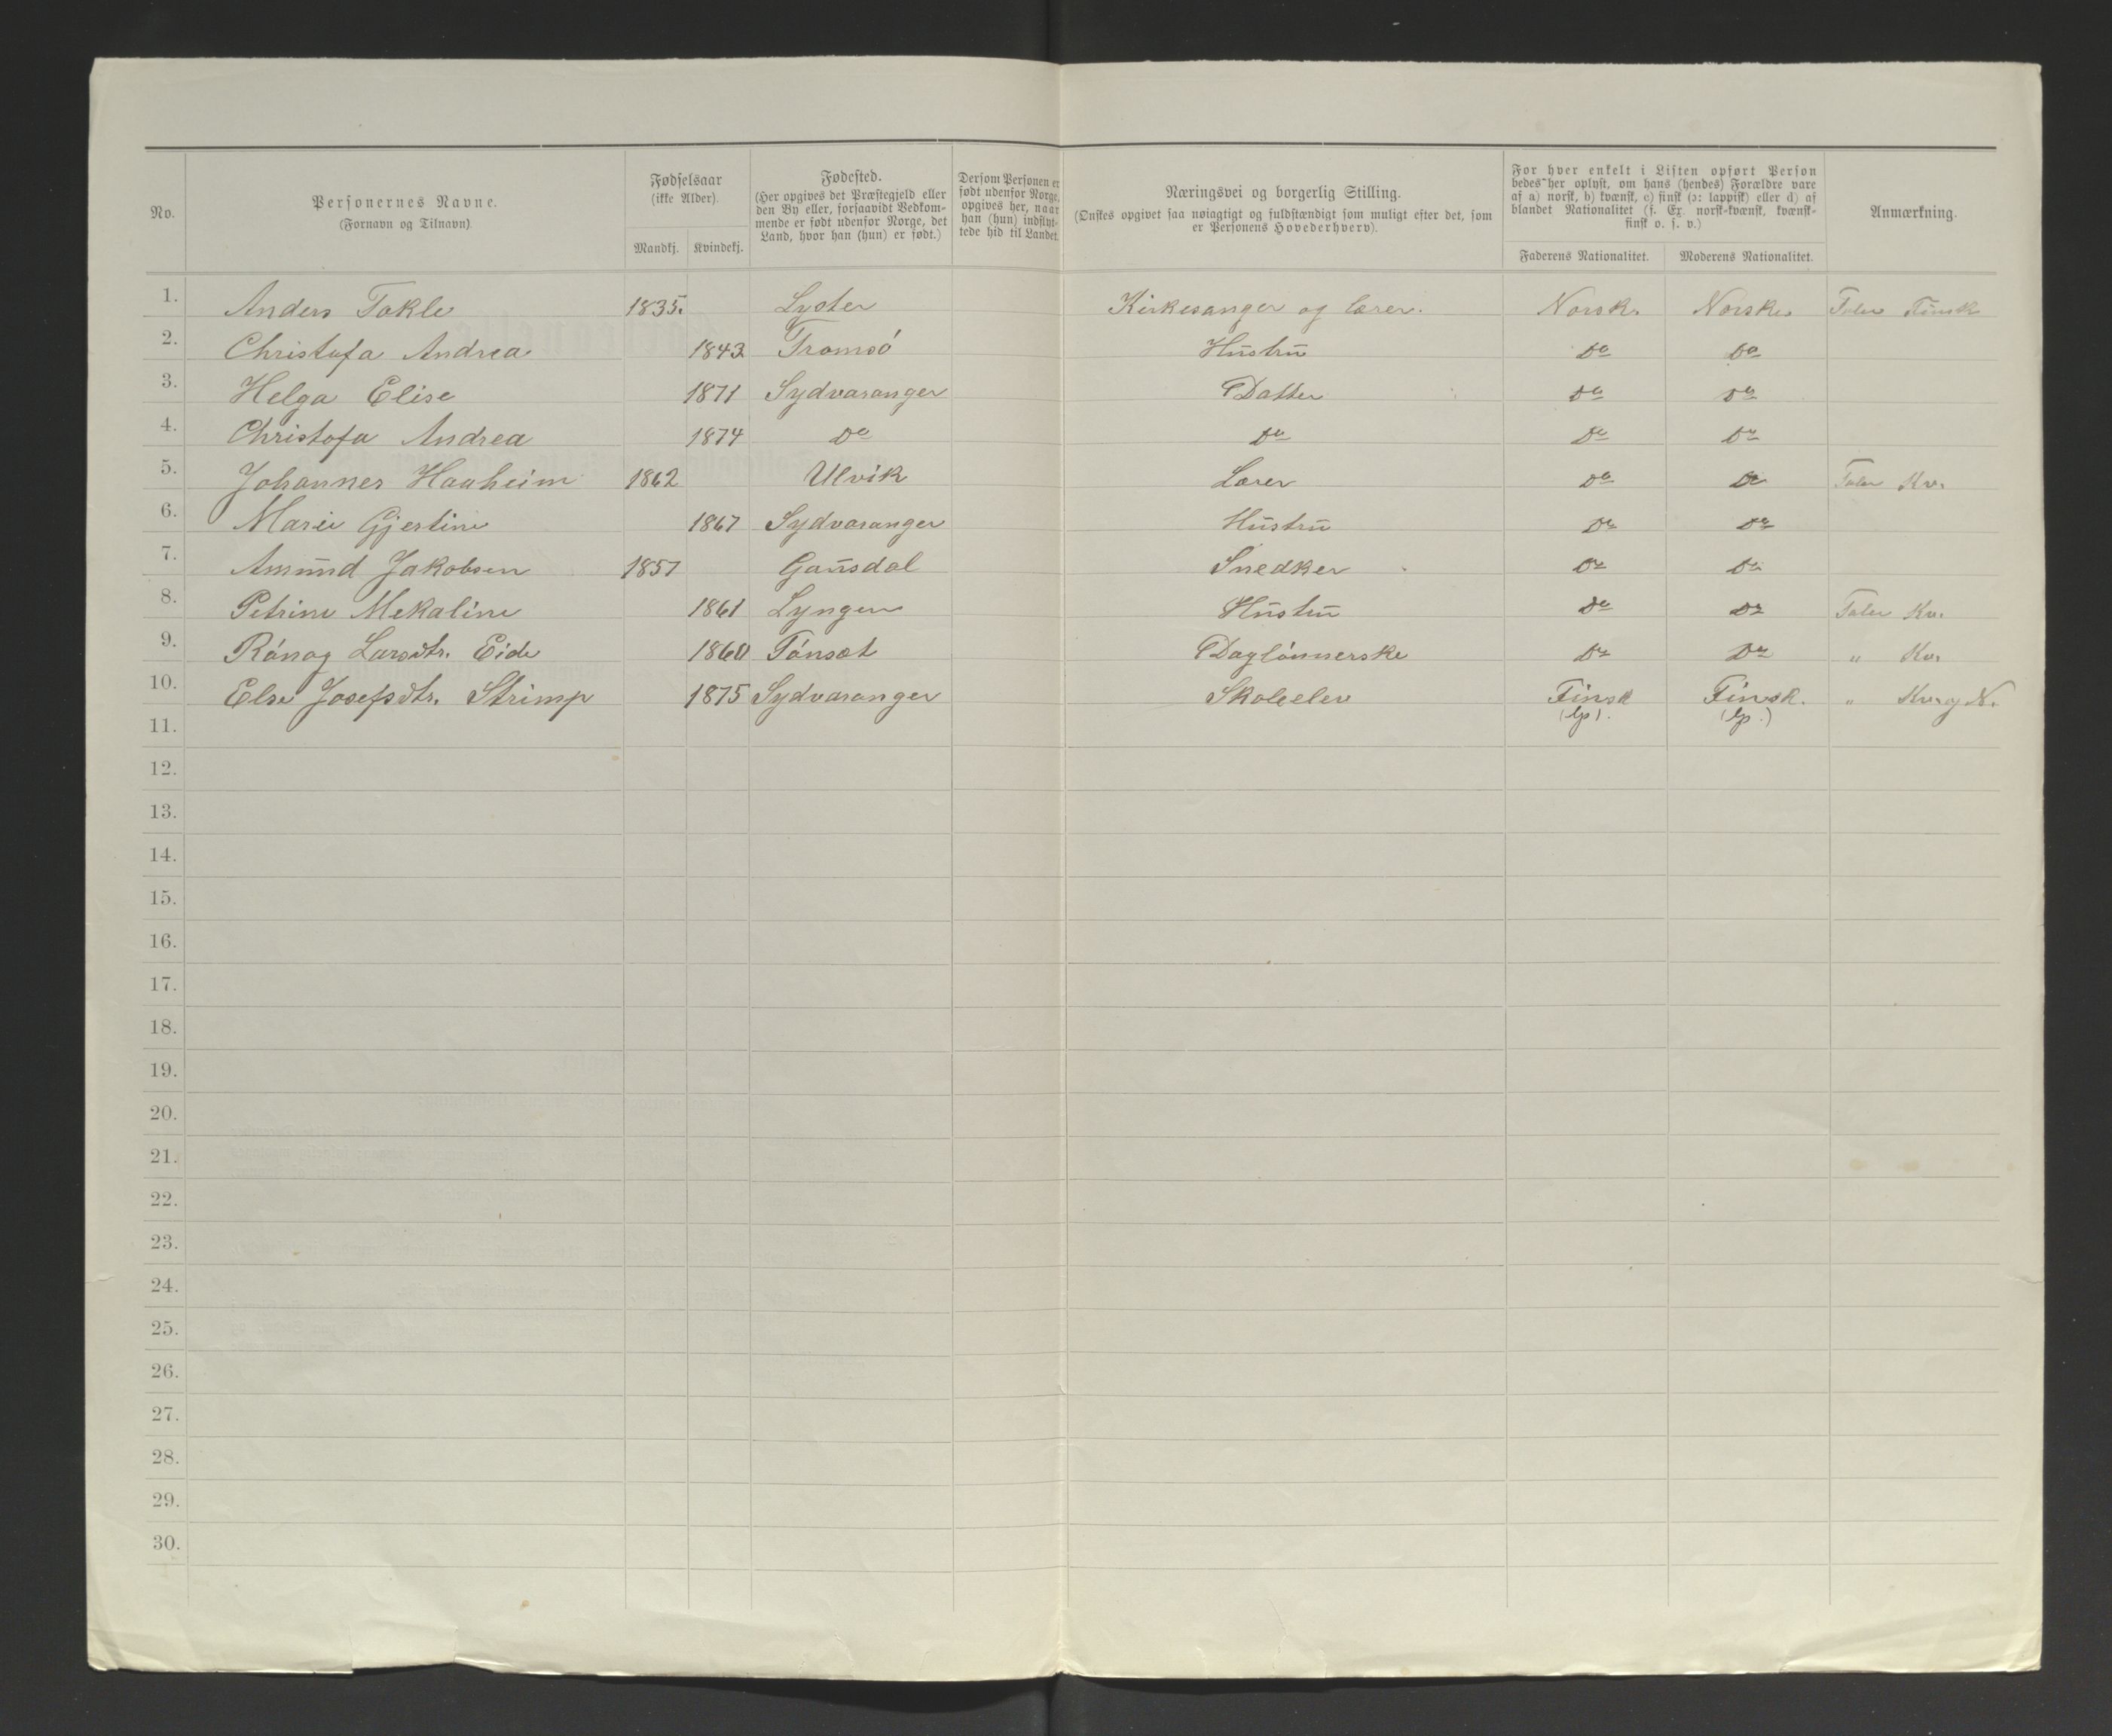 No.
Personernes Navne.
(Fornavn og Tilnavn).
Fødselsaar
(ikke Alder).
Mandkj. Kvindekj.
Fødested.
(Her opgives det Præstegjeld eller
den By eller, forsaavidt Vedkom-
mende er født udenfor Norge, det
Land, hvor han (hun) er født.)
Dersom Personen er
født udenfor Norge,
opgives her, naar
han (hun) indflyt-
tede hid til Landet.
Næringsvei og borgerlig Stilling.
(Ønskes opgivet saa nøiagtigt og fuldstændigt som muligt efter det, som
er Personens Hovederhverv).
For hver enkelt i Listen opført Person
bedes her oplyst, om hans (hendes) Forældre vare
af a) norsk, b) kvænsk, c) finsk (ɔ: lappisk) eller d) af
blandet Nationalitet (f. Ex. norsk-kvænsk, kvænsk-
finsk o. s. v.)
Faderens Nationalitet. Moderens Nationalitet.
Anmærkning.
1. Anders Tokle 1835. Lyster Kirkesanger og lærer. Norsk. Norske Taler Finsk
2. Christofa Andrea 1843 Tromsö Hustru Do Do
3. Helga Elise 1871 Sydvaranger Datter Do Do
4. Christofa Andrea 1874 Do Do Do Do
5. Johannes Haaheim 1862 Ulvik Lærer Do Do Taler Kv.
6. Marie Gjertine 1867 Sydvaranger Hustru Do Do
7. Amund Jakobsen 1857 Gausdal Snedker Do Do
8. Petrine Mekaline 1861 Lyngen Hustru Do Do Taler Kv.
9. Rónag Larsdtr. Eide 1860 Tónsæt Daglónnerske Do Do " Kv.
10. Else Josefsdtr. Strimp 1875 Sydvaranger Skoleelev Finsk Finsk. " Kv. og N.
(lp). (lp.)
11.
12.
13.
14.
15.
16.
17.
18.
19.
20.
21.
22.
23.
24.
25.
26.
27.
28.
29.
30.